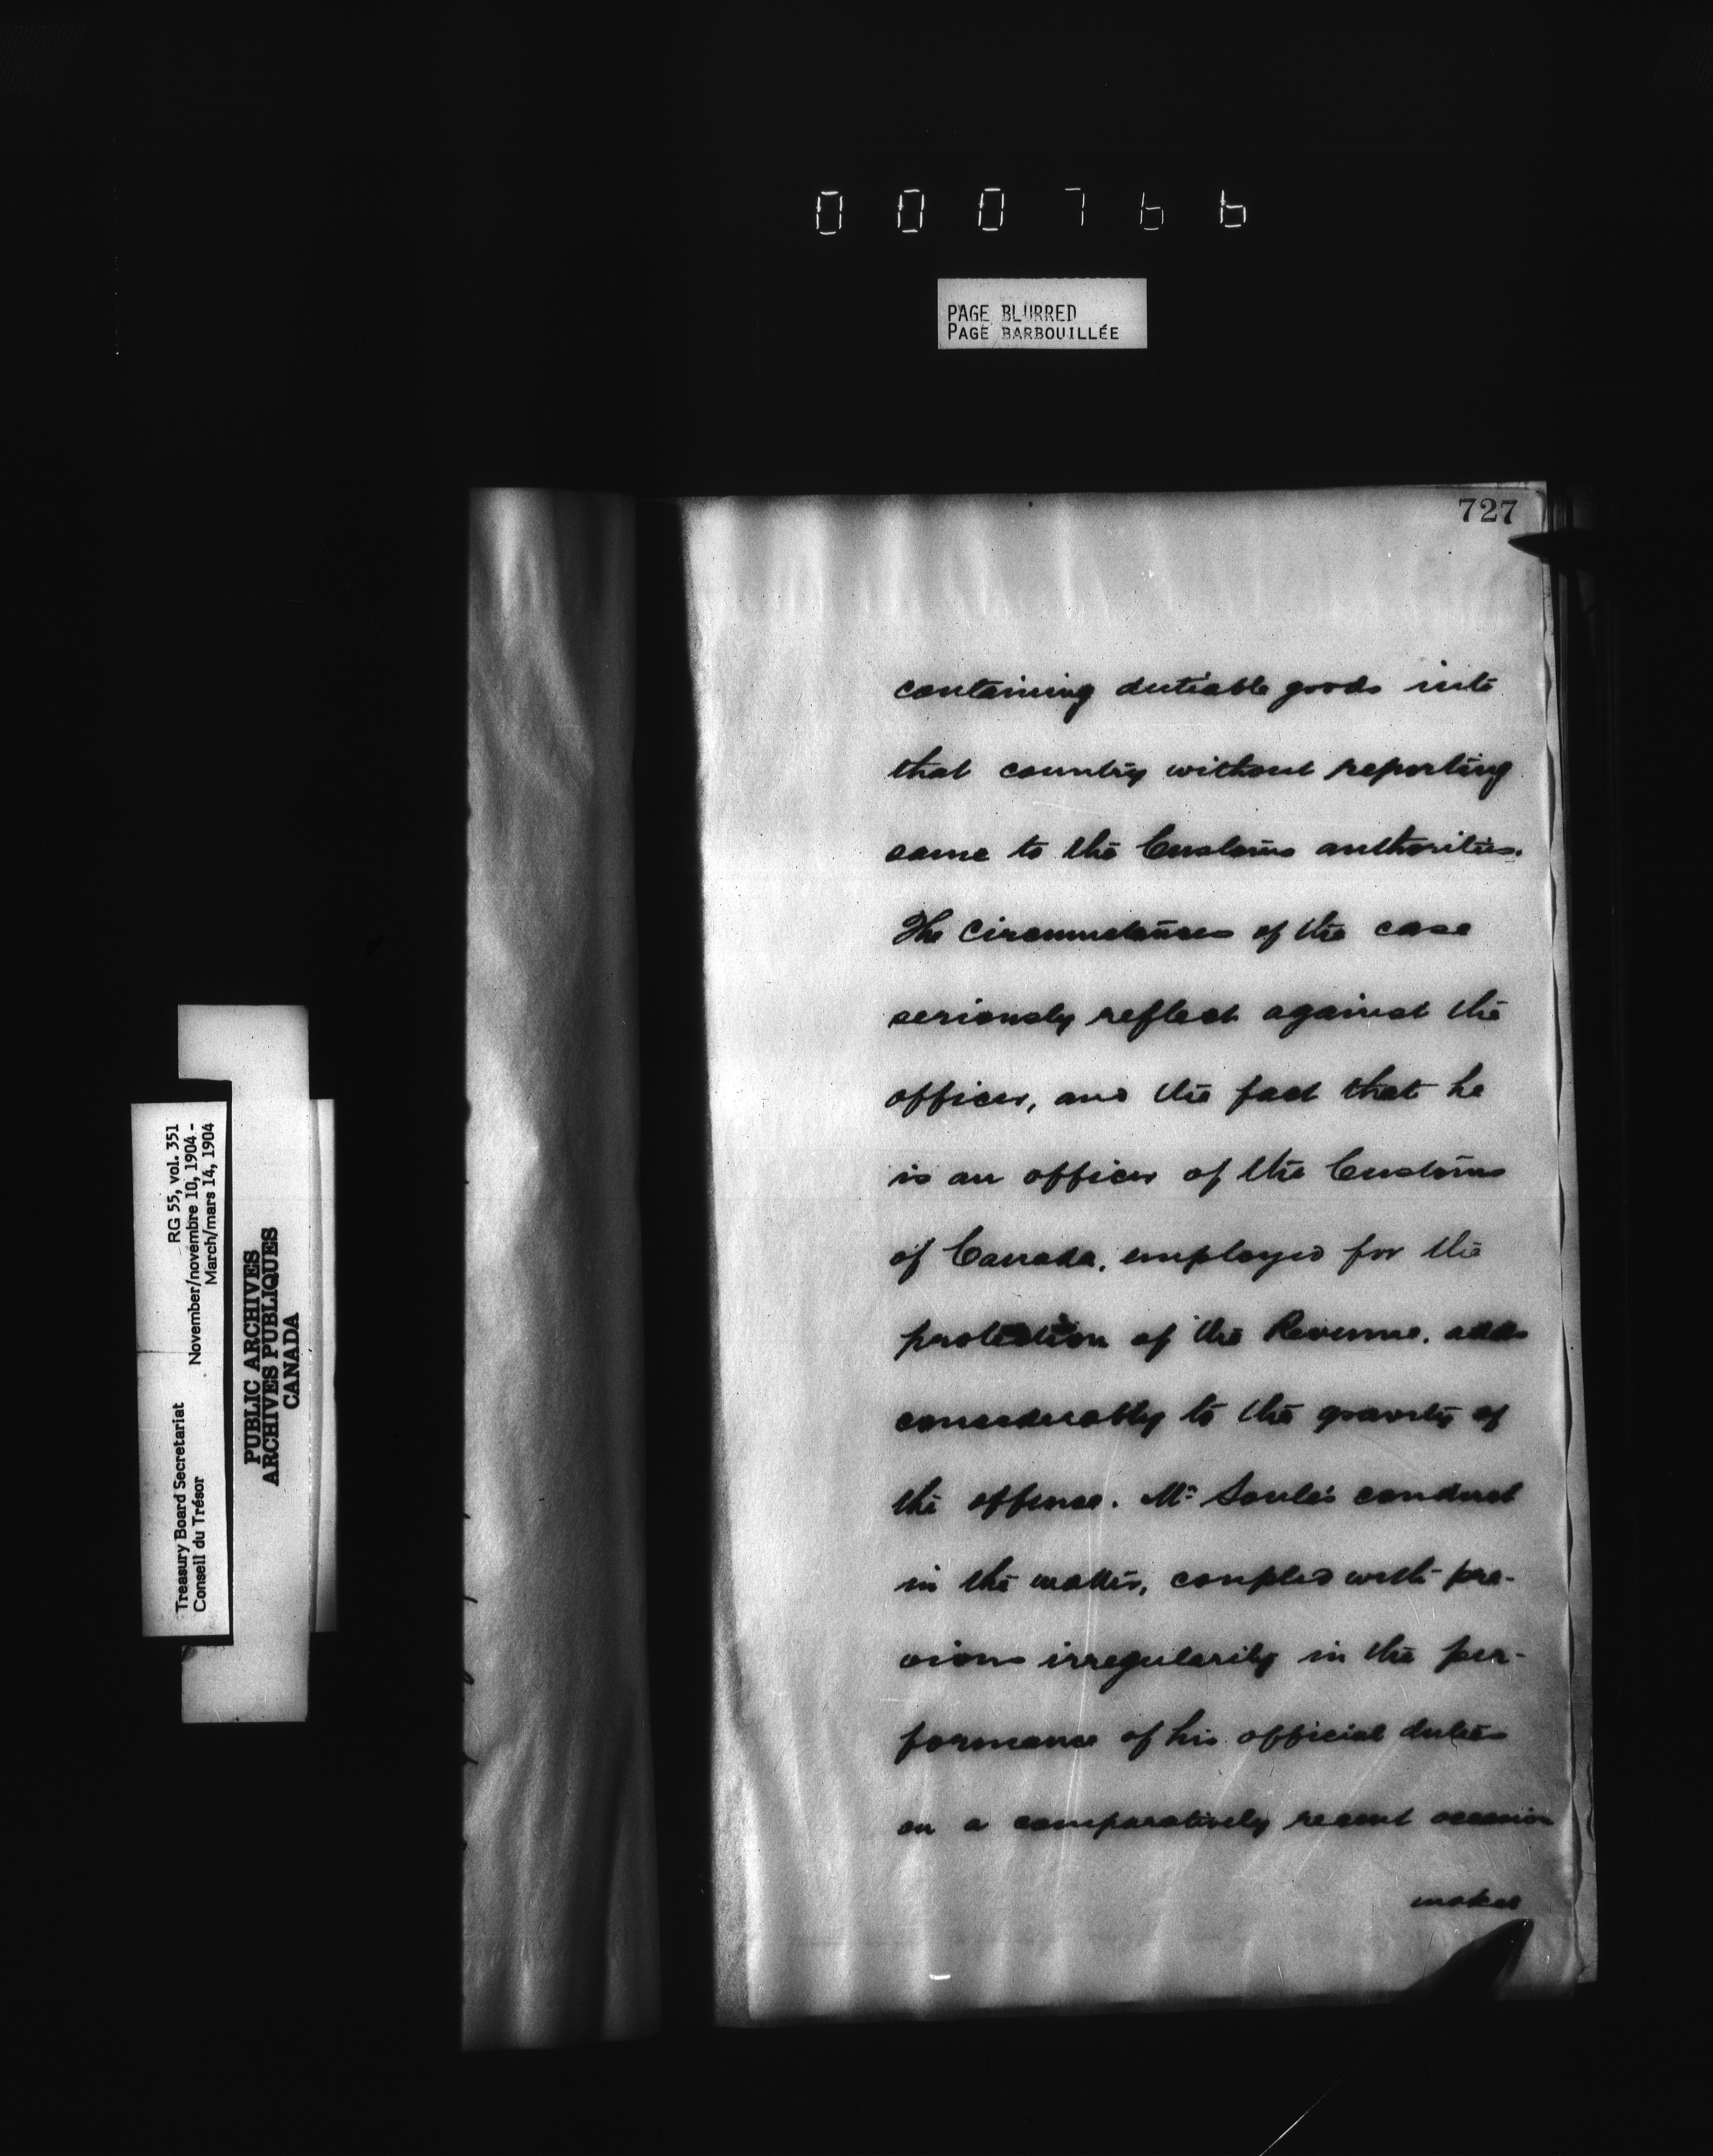 000766
PAGE BLURRED
PAGE BARBOUILLÉE
727
containing dutiable goods into
that country without reporting
same to the Customs authorities.
The circumstances of the case
seriously reflect against the
officer, and the fact that he
is an officer of the Customs
of Canada, employed for the
protection of the Revenue, adds
considerably to the gravity of
the offence. Mr Soule's conduct
in the matter, coupled with pre-
vious irregularity in the per-
formance of his official duties
on a comparatively recent occasion
makes
Treasury Board Secretariat RG 55, vol. 351
Conseil du Trésor November/novembre 10, 1904 -
March/mars 14, 1904
PUBLIC ARCHIVES
ARCHIVES PUBLIQUES
CANADA